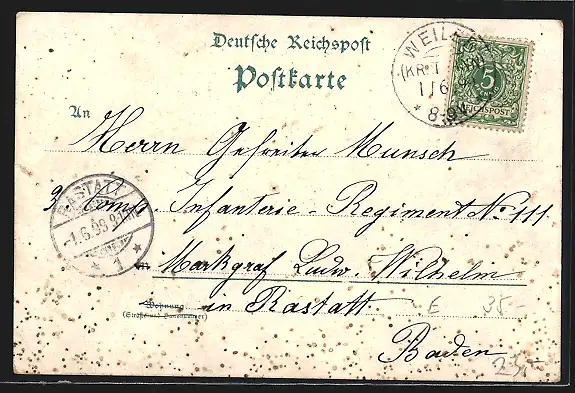 Deutsche Reichspost
Postkarte
WEILER
(KR. T
1/6
* 8-9V
5
REICHSPOST
An
Herrn Gefreiter Munsch
3. Comp. Infanterie-Regiment No. 111
RASTATT
1.6.98.9-
* 1 *
Markgraf Ludw. Wilhelm
Wohnung
(Straße und Hausnummer)
in Rastatt
E 35-
Baden
25,-